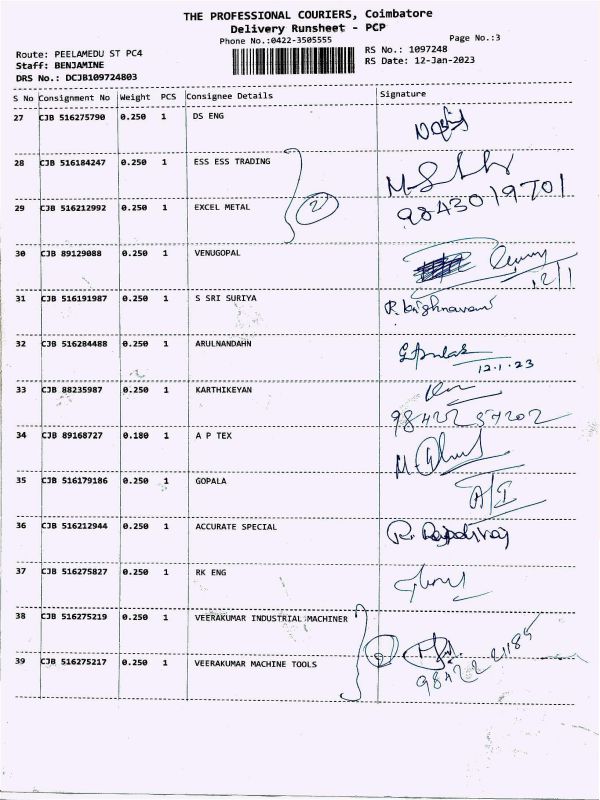 THE PROFESSIONAL COURIERS, Coimbatore
Delivery Runsheet - PCP
Phone No.:0422-3505555
Page No.:3
Route: PEELAMEDU ST PC4
RS No.: 1097248
Staff: BENJAMINE
RS Date: 12-Jan-2023
DRS No.: DCJB109724803
S No Consignment No Weight PCS Consignee Details Signature
27 CJB 516275790 0.250 1 DS ENG
28 CJB 516184247 0.250 1 ESS ESS TRADING
29 CJB 516212992 0.250 1 EXCEL METAL 2 9843019701
30 CJB 89129088 0.250 1 VENUGOPAL 12/1
31 CJB 516191987 0.250 1 S SRI SURIYA
32 CJB 516284488 0.250 1 ARULNANDAHN 12.1.23
33 CJB 88235987 0.250 1 KARTHIKEYAN
34 CJB 89168727 0.180 1 A P TEX
35 CJB 516179186 0.250 1 GOPALA
36 CJB 516212944 0.250 1 ACCURATE SPECIAL
37 CJB 516275827 0.250 1 RK ENG
38 CJB 516275219 0.250 1 VEERAKUMAR INDUSTRIAL MACHINER
39 CJB 516275217 0.250 1 VEERAKUMAR MACHINE TOOLS 2